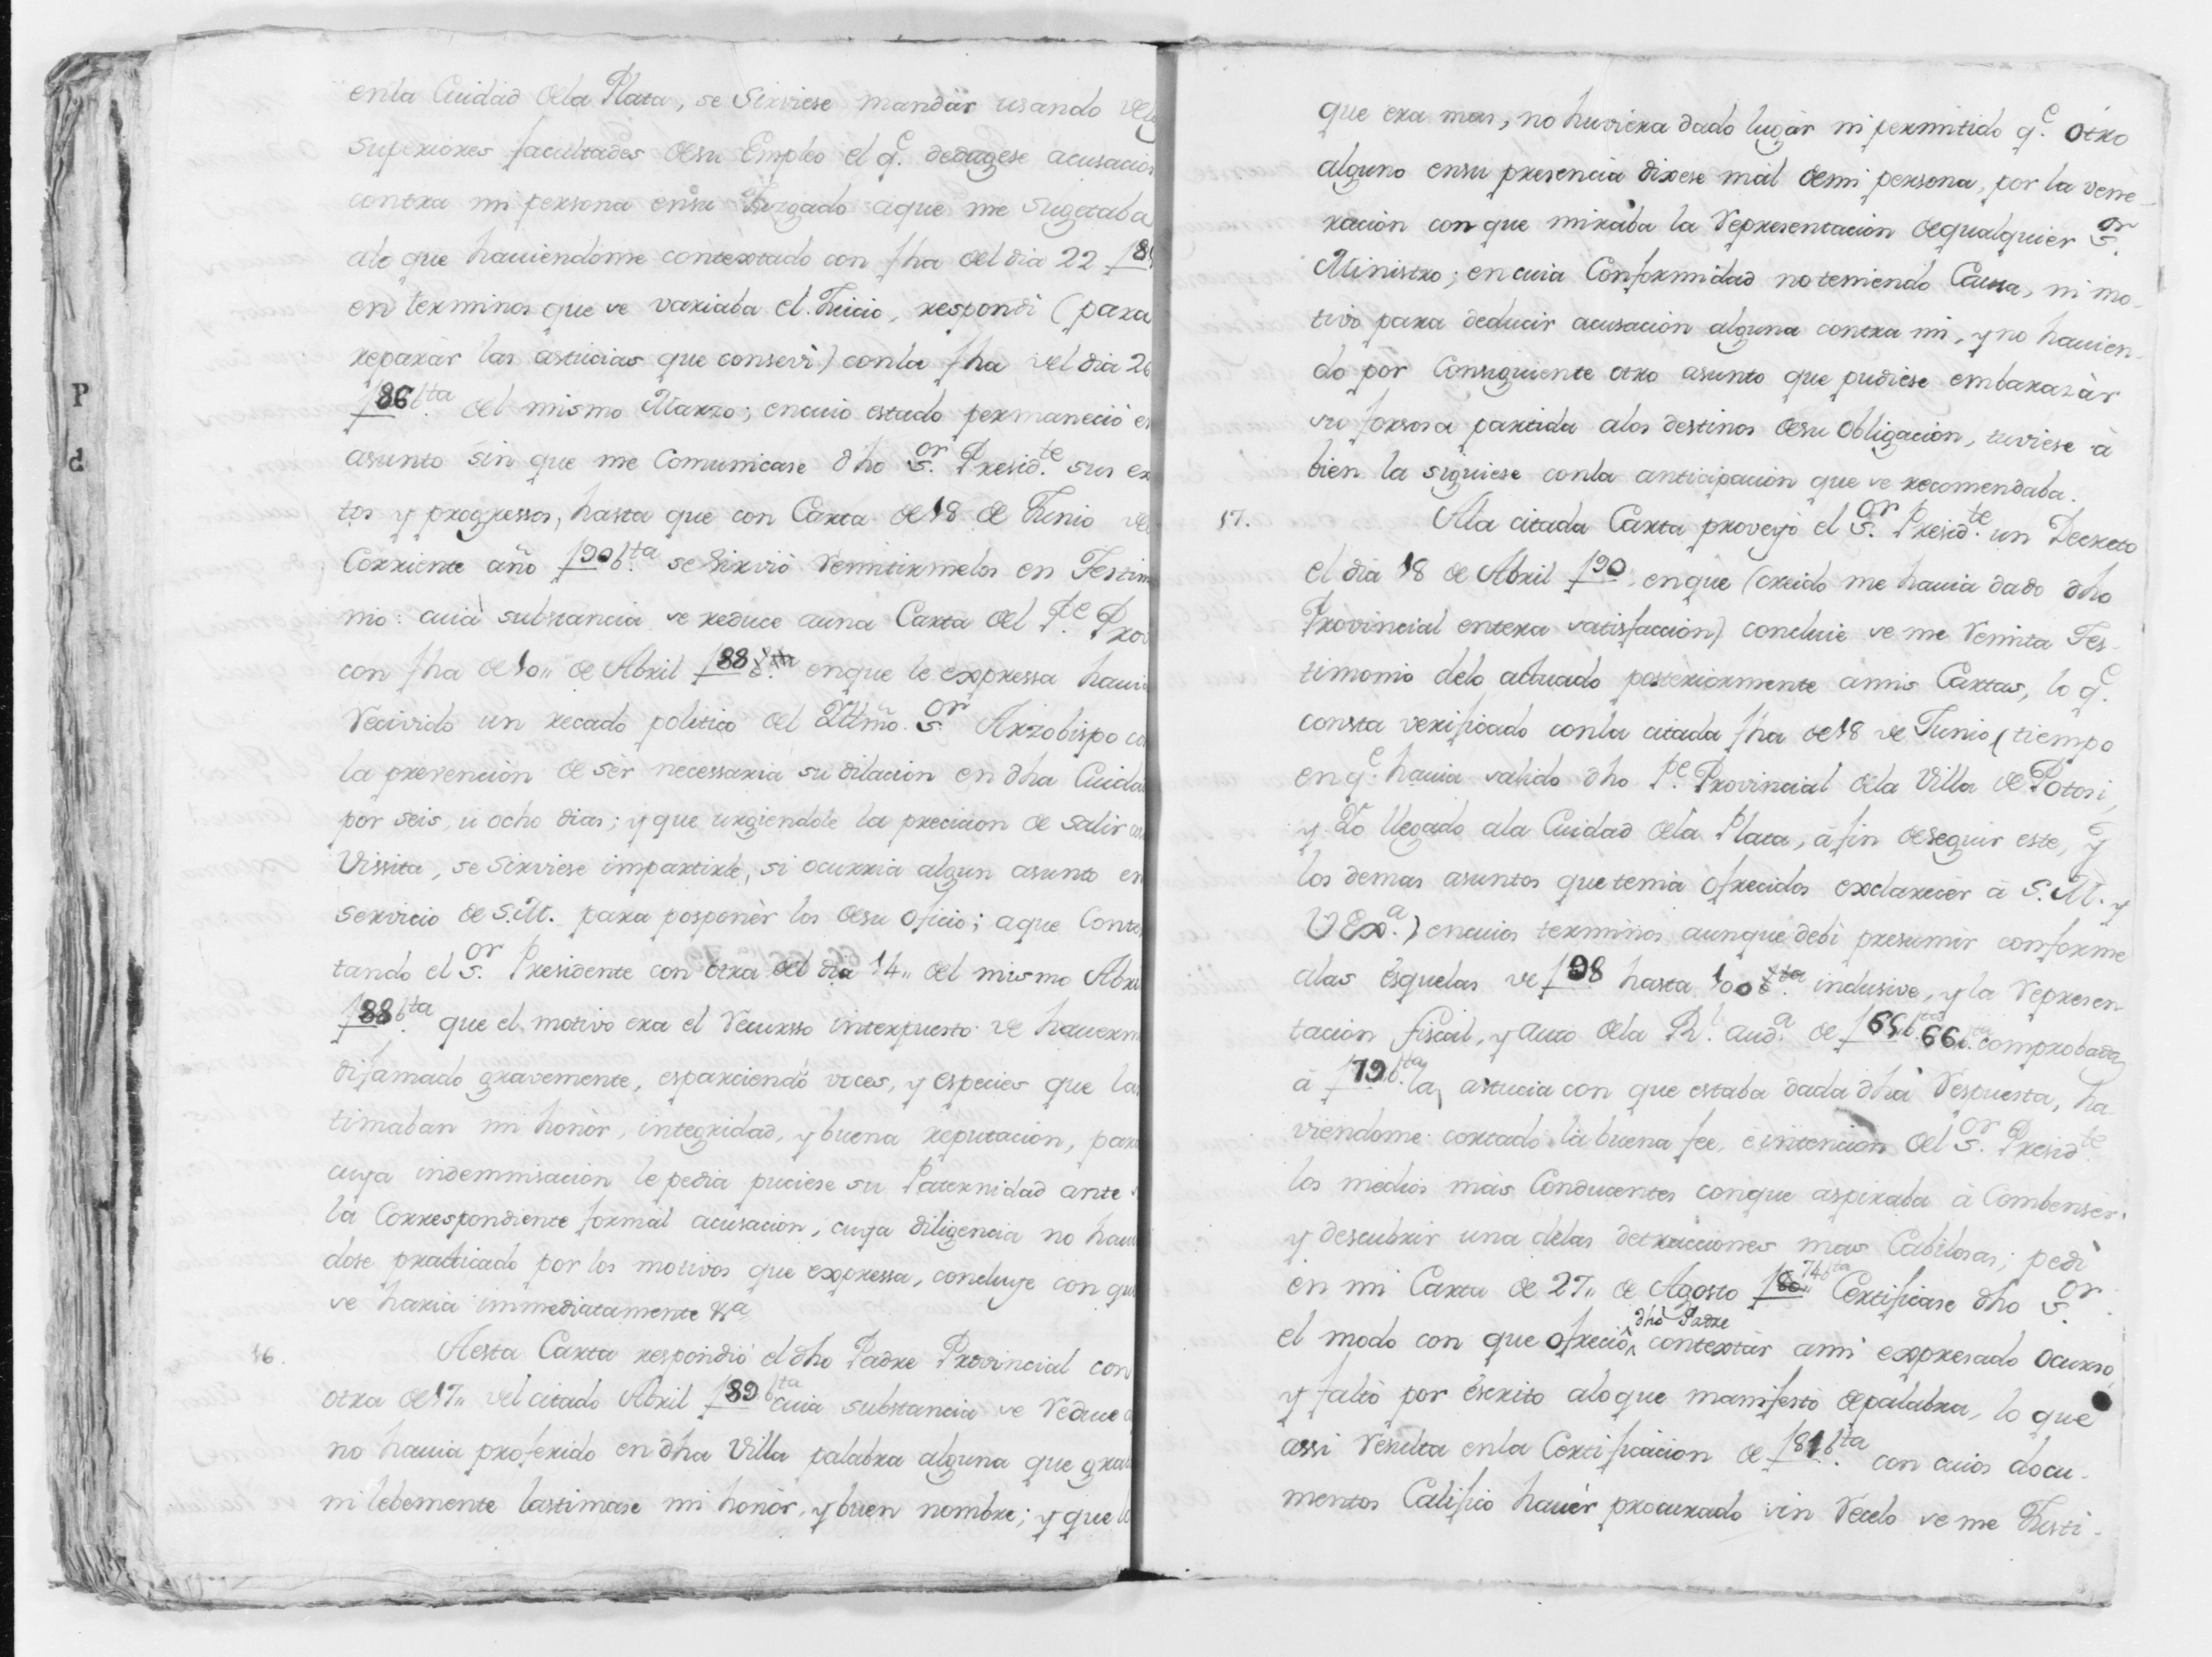 enla Ciudad dela Plata, se Sirviese mandàr usando de
superiores facultades desu Empleo el q.e dedugese acusacion
contra mi persona ensu Juzgado aque me sugetaba
alo que haviendome contextado con fha del dia 22 f
en terminos que se variaba el Juicio, respondi (para
reparàr las astucias que consevi) conla fha del dia 26
f86 b.ta del mismo Marzo; encuio estado permaneciò e
asunto sin que me Comunicase dho S.or Presid.te sus ex
tos y progressos, hasta que con Carta de 18 de Junio de
Corriente año f90 b.ta se Sirviò Remitirmelos en Testim
nio: cuia substancia se reduce auna Carta del P.e Prov
con fha de 10,, de Abril f88 b.ta enque le expressa havia
Recivido un recado politico del Yllmo. S.or Arzobispo co
la prevencion de ser necessaria su dilacion en dha Ciuda
por seis, u ocho dias; y que urgiendole la precicion de salir
Vissita, se Sirviese impartirle, si ocurria algun asunto en
servicio de S.M. para posponèr los desu oficio; aque Contes
tando el S.or Presidente con otra del dia 14,, del mismo Abri
f88 b.ta que el motivo era el Recursso interpuesto de haverm
difamado gravemente, esparciendo voces, y especies que las
timaban mi honòr, integridad, y buena reputacion, para
cuya indemnisacion le pedia puciese su Paternidad ante
la Correspondiente formàl acusacion; cuya diligencia no havi
dose practicado por los motivos que expressa, concluye con que
se haria immediatamente &a
16. Aesta Carta respondiò el dho Padre Provincial con
otra de 17,, del citado Abril f89 b.ta cuia substancia se Reduce
no havia proferido en dha Villa palabra alguna que gra
ni lebemente lastimase mi honòr, y buen nombre; y que lo
que era mas, no huviera dado lugàr ni permitido q.e otro
alguno ensu presencia dixese màl demi persona, por la vene-
racion con que miràba la Representacion dequalquier S.or
Ministro; en cuia Conformidad no teniendo Causa, ni mo-
tivo para deducir acusacion alguna contra mi, y no havien-
do por Consiguiente otro asunto que pudiese embarazàr
su forsosa partida alos destinos desu Obligacion, tuviese à
bien la siguiese conla anticipacion que se recomendaba.
17. Ala citada Carta proveyò el S.or Presid.te un Decreto
el dia 18 de Abril f90, enque (creido me havia dado dho
Provincial entera satisfaccion) concluie se me Remita Tes-
timonio delo actuado posteriormente amis Cartas, lo q.e
consta verificado conla citada fha de 18 de Junio (tiempo
en q.e havia salido dho P.e Provincial dela Villa de Potosi,
y Yo llegado ala Ciudad dela Plata, à fin deseguir este, y
los demas asuntos que tenia ofrecidos exclarecèr à S.M. y
V Ex.a) encuios terminos aunque debi presumir conforme
alas èsquelas de f98 hasta 100 b.ta inclusive, y la Represen
tacion fiscàl, y auto dela R.l aud.a de f65 b.ta 66 b.ta comprobada
à f79 b.ta la astucia con que estaba dada dha Respuesta, ha-
viendome cortado la buena fee, è intencion del S.or Presid.te
los medios màs Conducentes conque aspiraba à Combenser
y descubrir una delas detracciones mas Cabilosas; pedì
en mi Carta de 27,, de Agosto f80 74 b.ta Certificase dho S.or
dho Padre
el modo con que ofreciò contextàr ami expresado ocurso,
y faltò por èscrito aloque manifestò depalabra, lo que
assi Resulta enla Certificacion de f81 b.ta con cuios docu-
mentos Califico havèr procurado sin Recelo se me Justi-